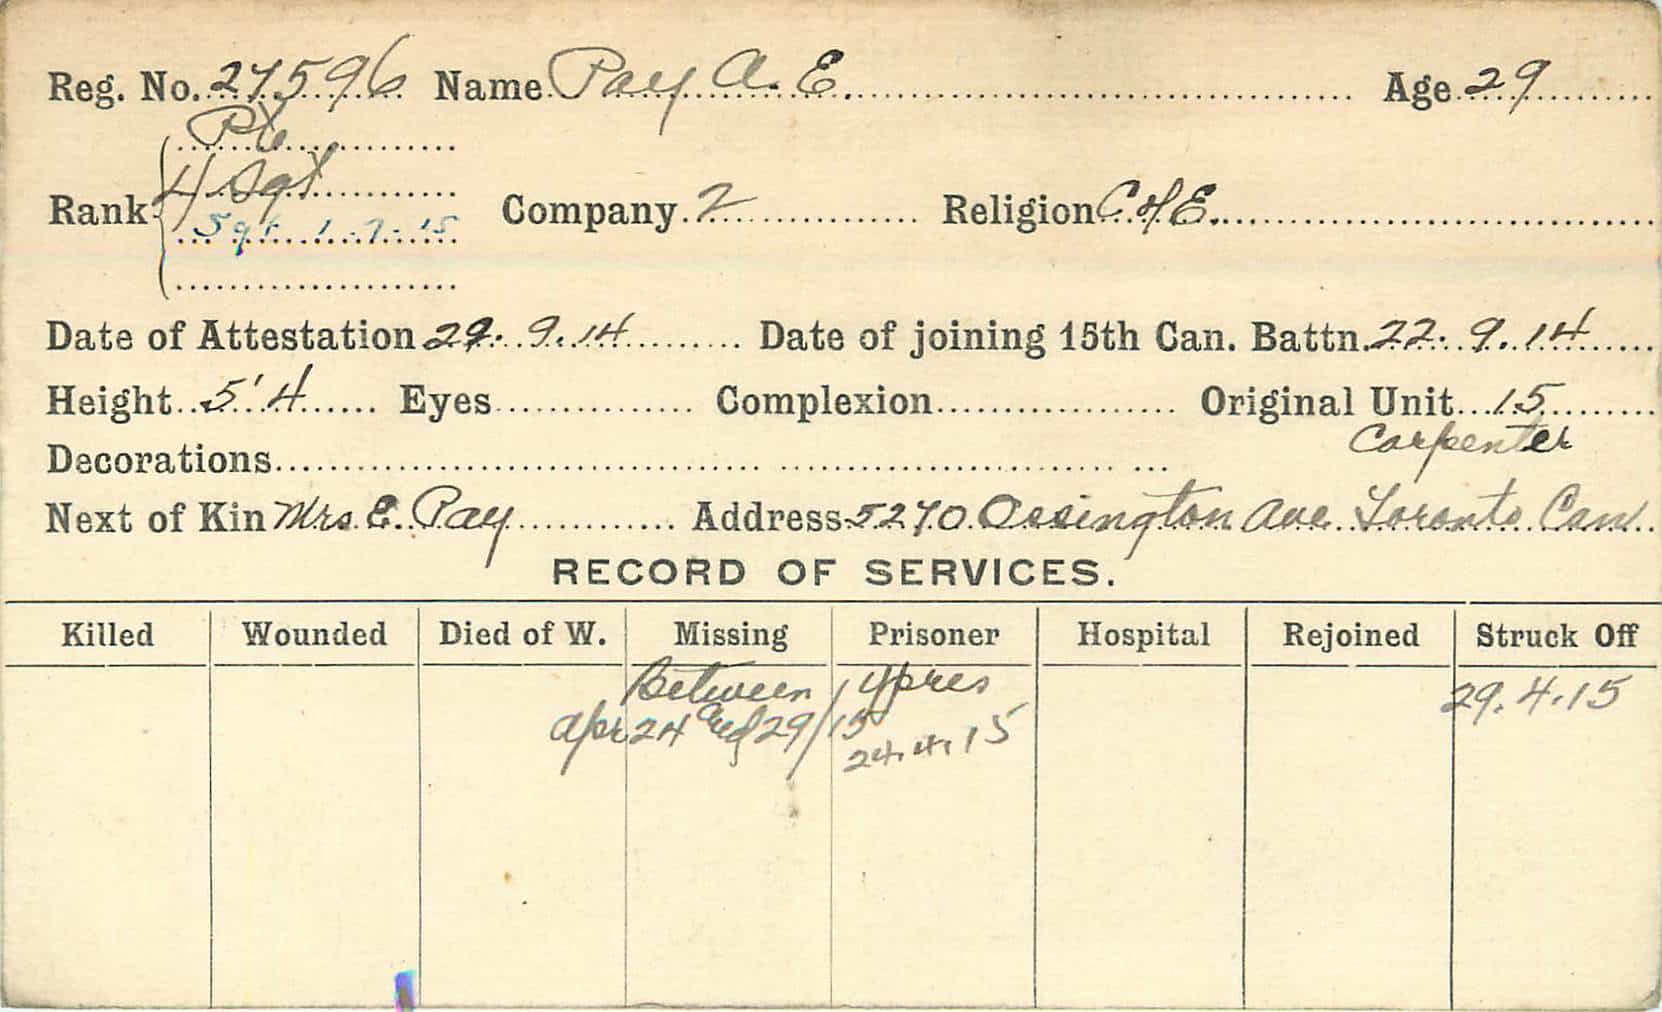 Reg. No. 27596 Name Pay A. E. Age 29
Pte
Rank L/Sgt Company 2 Religion C of E.
Sgt. 1-7-15
Date of Attestation 9.14 Date of joining 15th Can. Battn. 22.9.14
Height 5'4 Eyes Complexion Original Unit 15
Carpenter
Decorations
Next of Kin Mrs E. Pay Address Ossington Ave Toronto Can.
RECORD OF SERVICES.
Killed Wounded Died of W. Missing Prisoner Hospital Rejoined Struck Off
Between Ypres 29.4.15
Apr 24 and 29/15 24.4.15